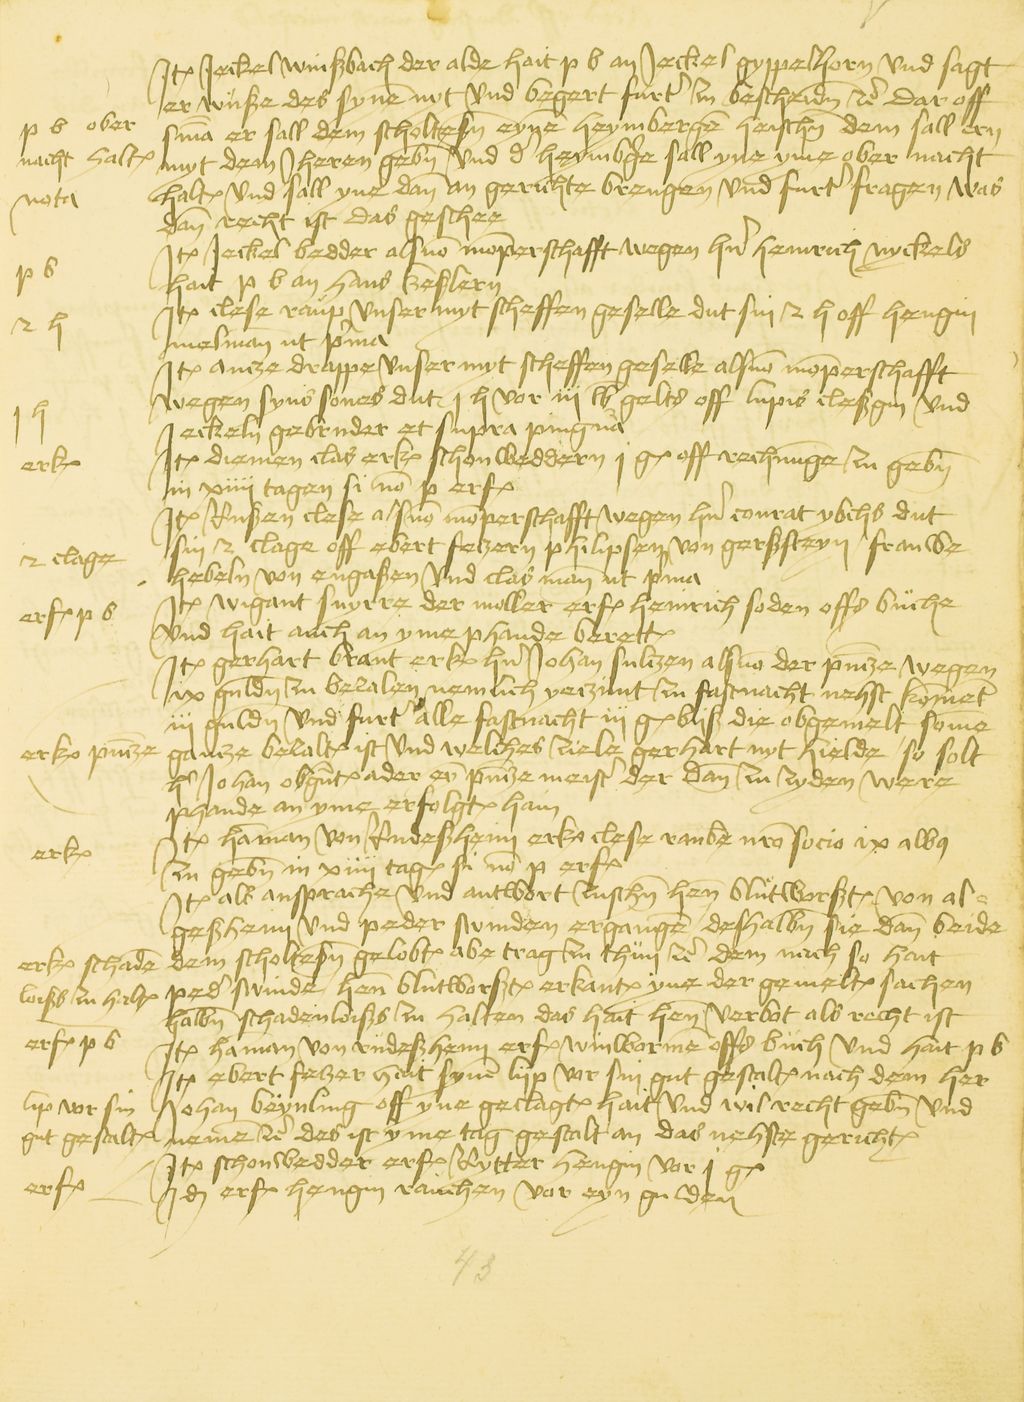 Jtem Jeckel Winßbach der alde hait p b an Jeckel gyppelhorn vnd sagt
er wuße des syne nyt vnd begert furter zu bescheiden dar off
p b ober
sentencia er sall dem scholtesen eyne heymbergen heischen dem sall ern
nacht halten
myt dem Jheren geben vnd der heymberger sall yne yme ober nacht
nota
halten vnd sall yne dan an gerichte brengen vnd furter fragen was
dan recht ist das geschee
Jtem Jeckel bedder als von monperschafft wegen her heinrich nyckels
p b
hait p b an hans keßlern
Jtem clese raup vnser myt scheffen geselle dut sin 2 h off hengin
2 h
melman ut prima
Jtem antze drappe vnser myt scheffen geselle als von monperschafft
wegen syns sones dut j h vor iij lb gelts off lupis cleßgin vnd
j h
Jeckeln gebruder et supra pingnora
erk
Jtem diemen clas erk schonweddern j g off rechnunge zu geben
in xiiij tagen si non p erf
Jtem Rußen clese als von monperschafft wegen her conrat dut
2 clage
sin 2 clage off ebert feltzern philipsen von gerßsteyn frauwe
hebeln von engaßen vnd clas man ut prima
erf p b
Jtem wigant snyrre der moller erf heinrich soden offs buche
vnd hait auch an yme phande berett
Jtem gerhart brant erk her Johan sultzen als von der presentze wegen
ix gulden zu bezalen nemlich yetzunt zu fastnacht nehst komet
iij gulden vnd furter alle fastnacht iij g biß die obgemelt some
erk presentze
gantze bezalt ist vnd welches ziele gerhart nyt hielde so solt
her Johan obgenant ader eyn presentze meister der dan zu zyden were
phande an yme erfolgt hain
Jtem haman von Rudeßheim erk clese rauben nostro socio ix albus
erk
zu geben in xiiij tag si non p erf
Jtem als ansprache vnd antwort zuschen hen blutworßt von al-
geßheim vnd peder swinden ergangen deshalben sie dan beide
erk schaden
dem scholtesen gelobt abe trag zu thun dem nach so hait
loiß zu halten
peder swinde hen blutworßt erkant yne der gemelt sachen
halben schadenloiß zu halten das hait hen verbot als recht ist
erf p b
Jtem haman von rudeßheim erf winworme offs buch vnd hait p b
Jtem ebert feltzer hait synen lyp vor sin gut gestalt nach dem her
lip vor sin
Johan beynling off yne geclagt hait vnd wil recht geben vnd
gut gestalt
nemen des ist yme tag gestalt an das nehste gericht
Jtem schonwedder erf Rytter hengin vor j g
erf
Jdem erf hengin rauchen vor eyn gulden
43